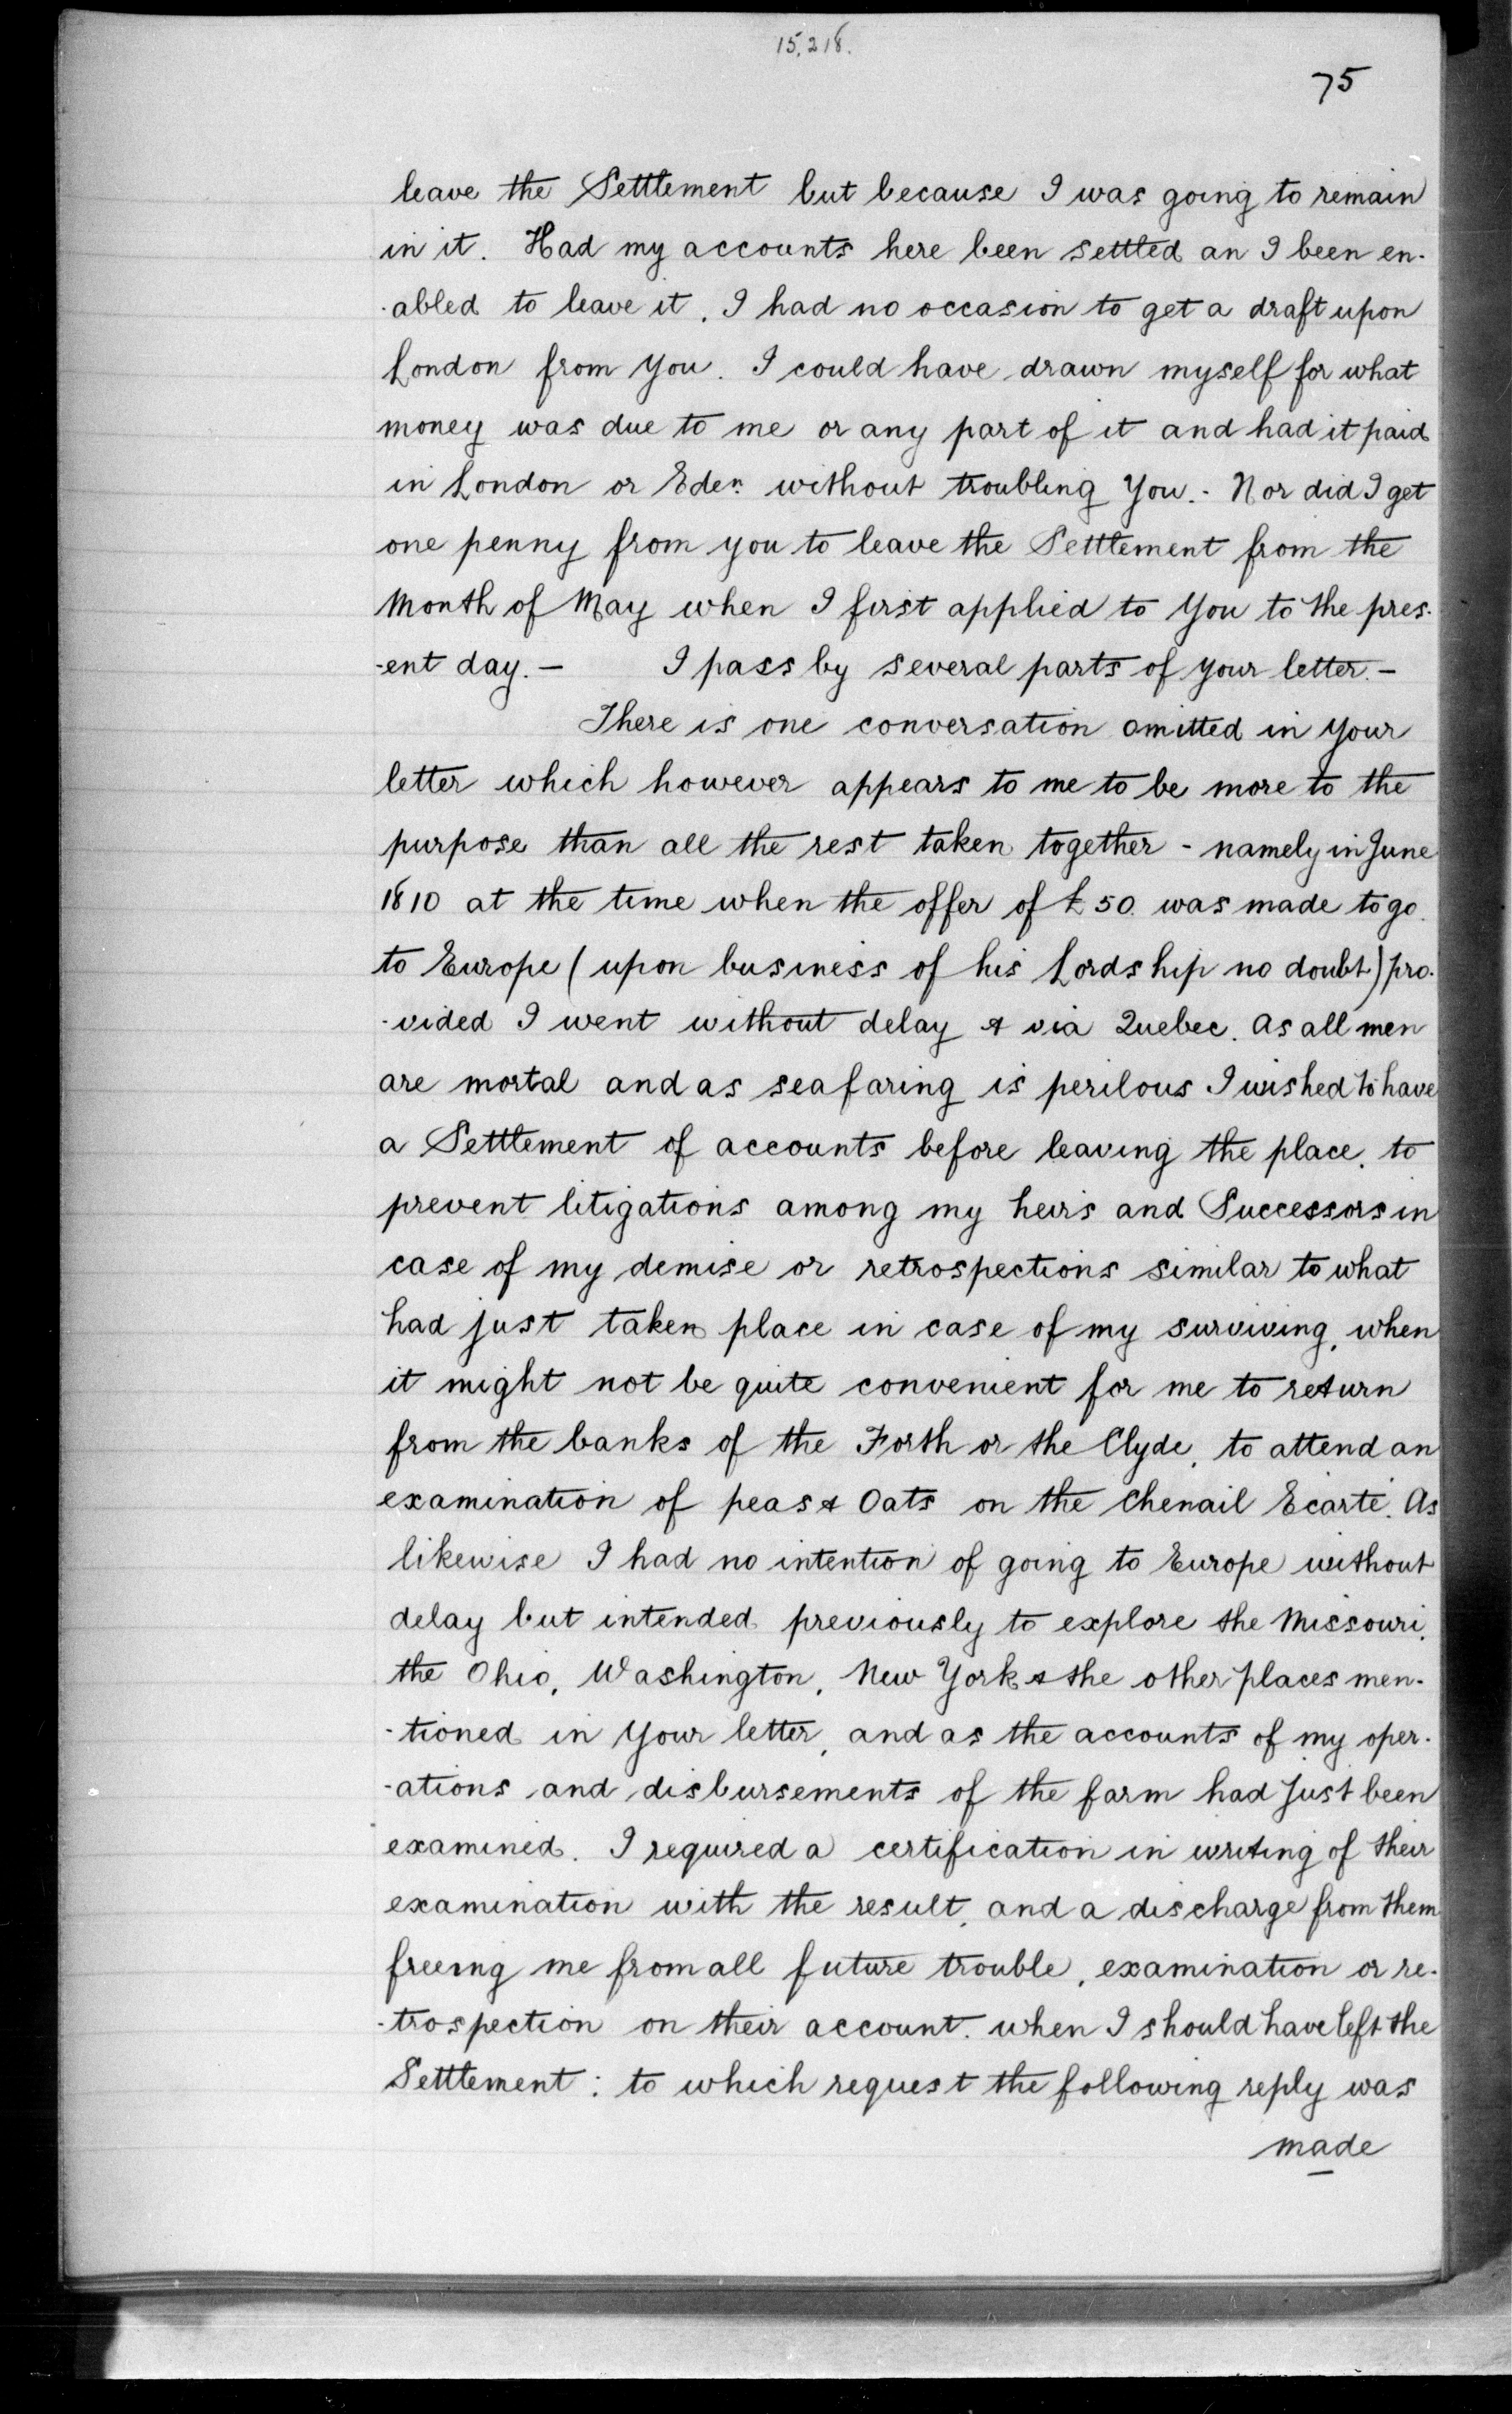 15,218.
75
leave the Settlement but because I was going to remain
in it. Had my accounts here been settled an I been en-
-abled to leave it, I had no occasion to get a draft upon
London from You. I could have drawn myself for what
money was due to me or any part of it and had it paid
in London or Eden. without troubling You.- Nor did I get
one penny from you to leave the Settlement from the
Month of May when I first applied to You to the pres-
-ent day. — I pass by several parts of your letter. —
There is one conversation omitted in Your
letter which however appears to me to be more to the
purpose than all the rest taken together - namely in June
1810 at the time when the offer of £50. was made to go
to Europe (upon business of his Lordship no doubt) pro-
-vided I went without delay & via Quebec. As all men
are mortal and as seafaring is perilous I wished to have
a Settlement of accounts before leaving the place, to
prevent litigations among my heirs and Successors in
case of my demise or retrospections similar to what
had just taken place in case of my surviving, when
it might not be quite convenient for me to return
from the banks of the Forth or the Clyde, to attend an
examination of peas & Oats on the Chenail Ecarté. As
likewise I had no intention of going to Europe without
delay but intended previously to explore the Missouri,
the Ohio, Washington, New York & the other places men-
-tioned in Your letter, and as the accounts of my oper-
-ations and disbursements of the farm had just been
examined. I required a certification in writing of their
examination with the result, and a discharge from them
freeing me from all future trouble, examination or re-
-trospection on their account. when I should have left the
Settlement : to which request the following reply was
made